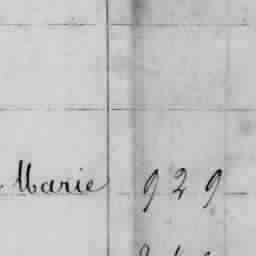 Marie 929